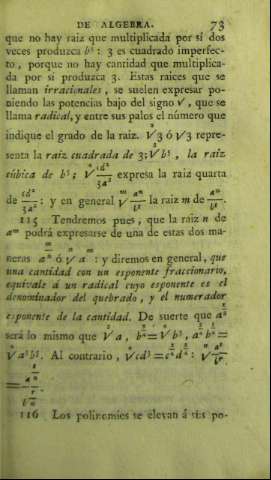 DE ALGEBRA. 73
que no hay raiz que multiplicada por sí dos
veces produzca b⁵: 3 es cuadrado imperfec-
to, porque no hay cantidad que multiplica-
da por si produzca 3. Estas raices que se
llaman irracionales, se suelen expresar po-
niendo las potencias bajo del signo √, que se
llama radical, y entre sus palos el número que
indique el grado de la raiz. √3 ó ²√3 repre-
senta la raiz cuadrada de 3; ³√b⁵, la raiz
cúbica de b⁵; ⁴√cd²/3a² expresa la raiz quarta
de cd²/3a²: y en general ᵐ√aⁿ/bˢ la raiz m de aⁿ/bˢ.
115 Tendremos pues, que la raiz n de
aᵐ podrá expresarse de una de estas dos ma-
neras a^(m/n) ó ⁿ√aᵐ: y diremos en general, que
una cantidad con un esponente fraccionario,
equivale á un radical cuyo esponente es el
denominador del quebrado, y el numerador
esponente de la cantidad. De suerte que
será lo mismo que
Al contrario,
116 Los polinomios se elevan á sus po-